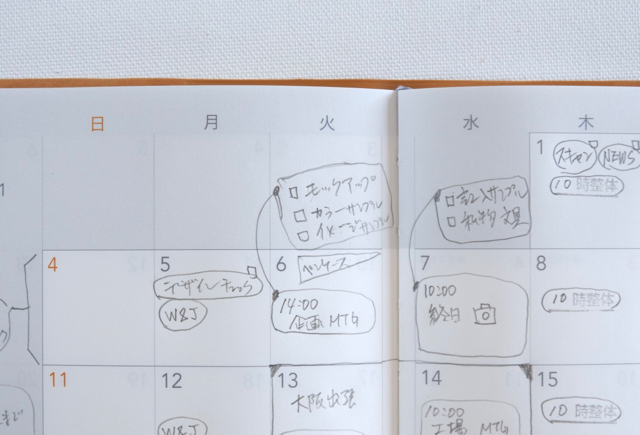 日 月 火 水 木
1 スキャン NEWS
10 時整体
□ モックアップ
□ カラーサンプル
□ イメージサンプル
□ 記入サンプル
□ 私物 文具
4
5
デザインチェック
W&J
6 ペンケース
14:00
企画 MTG
7
10:00
終日
8
10 時整体
11
12
W&J
13
大阪出張
14
10:00
工場 MTG
15
10 時整体
まで